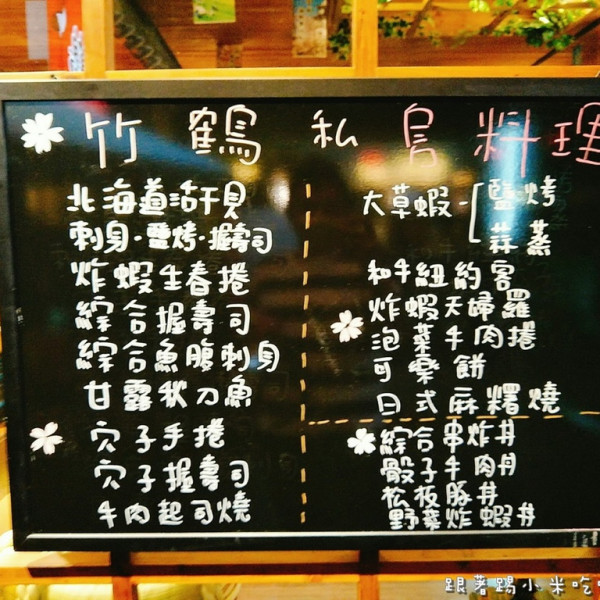 竹鶴私房料理
北海道活干貝
刺身·鹽烤·握壽司
炸蝦生春捲
綜合握壽司
綜合魚腹刺身
甘露秋刀魚
穴子手捲
穴子握壽司
牛肉起司燒
大草蝦-鹽烤
蒜蒸
和牛紐約客
炸蝦天婦羅
泡菜牛肉捲
可樂餅
日式麻糬燒
綜合串炸丼
骰子牛肉丼
松板豚丼
野菜炸蝦丼
跟著踢小米吃